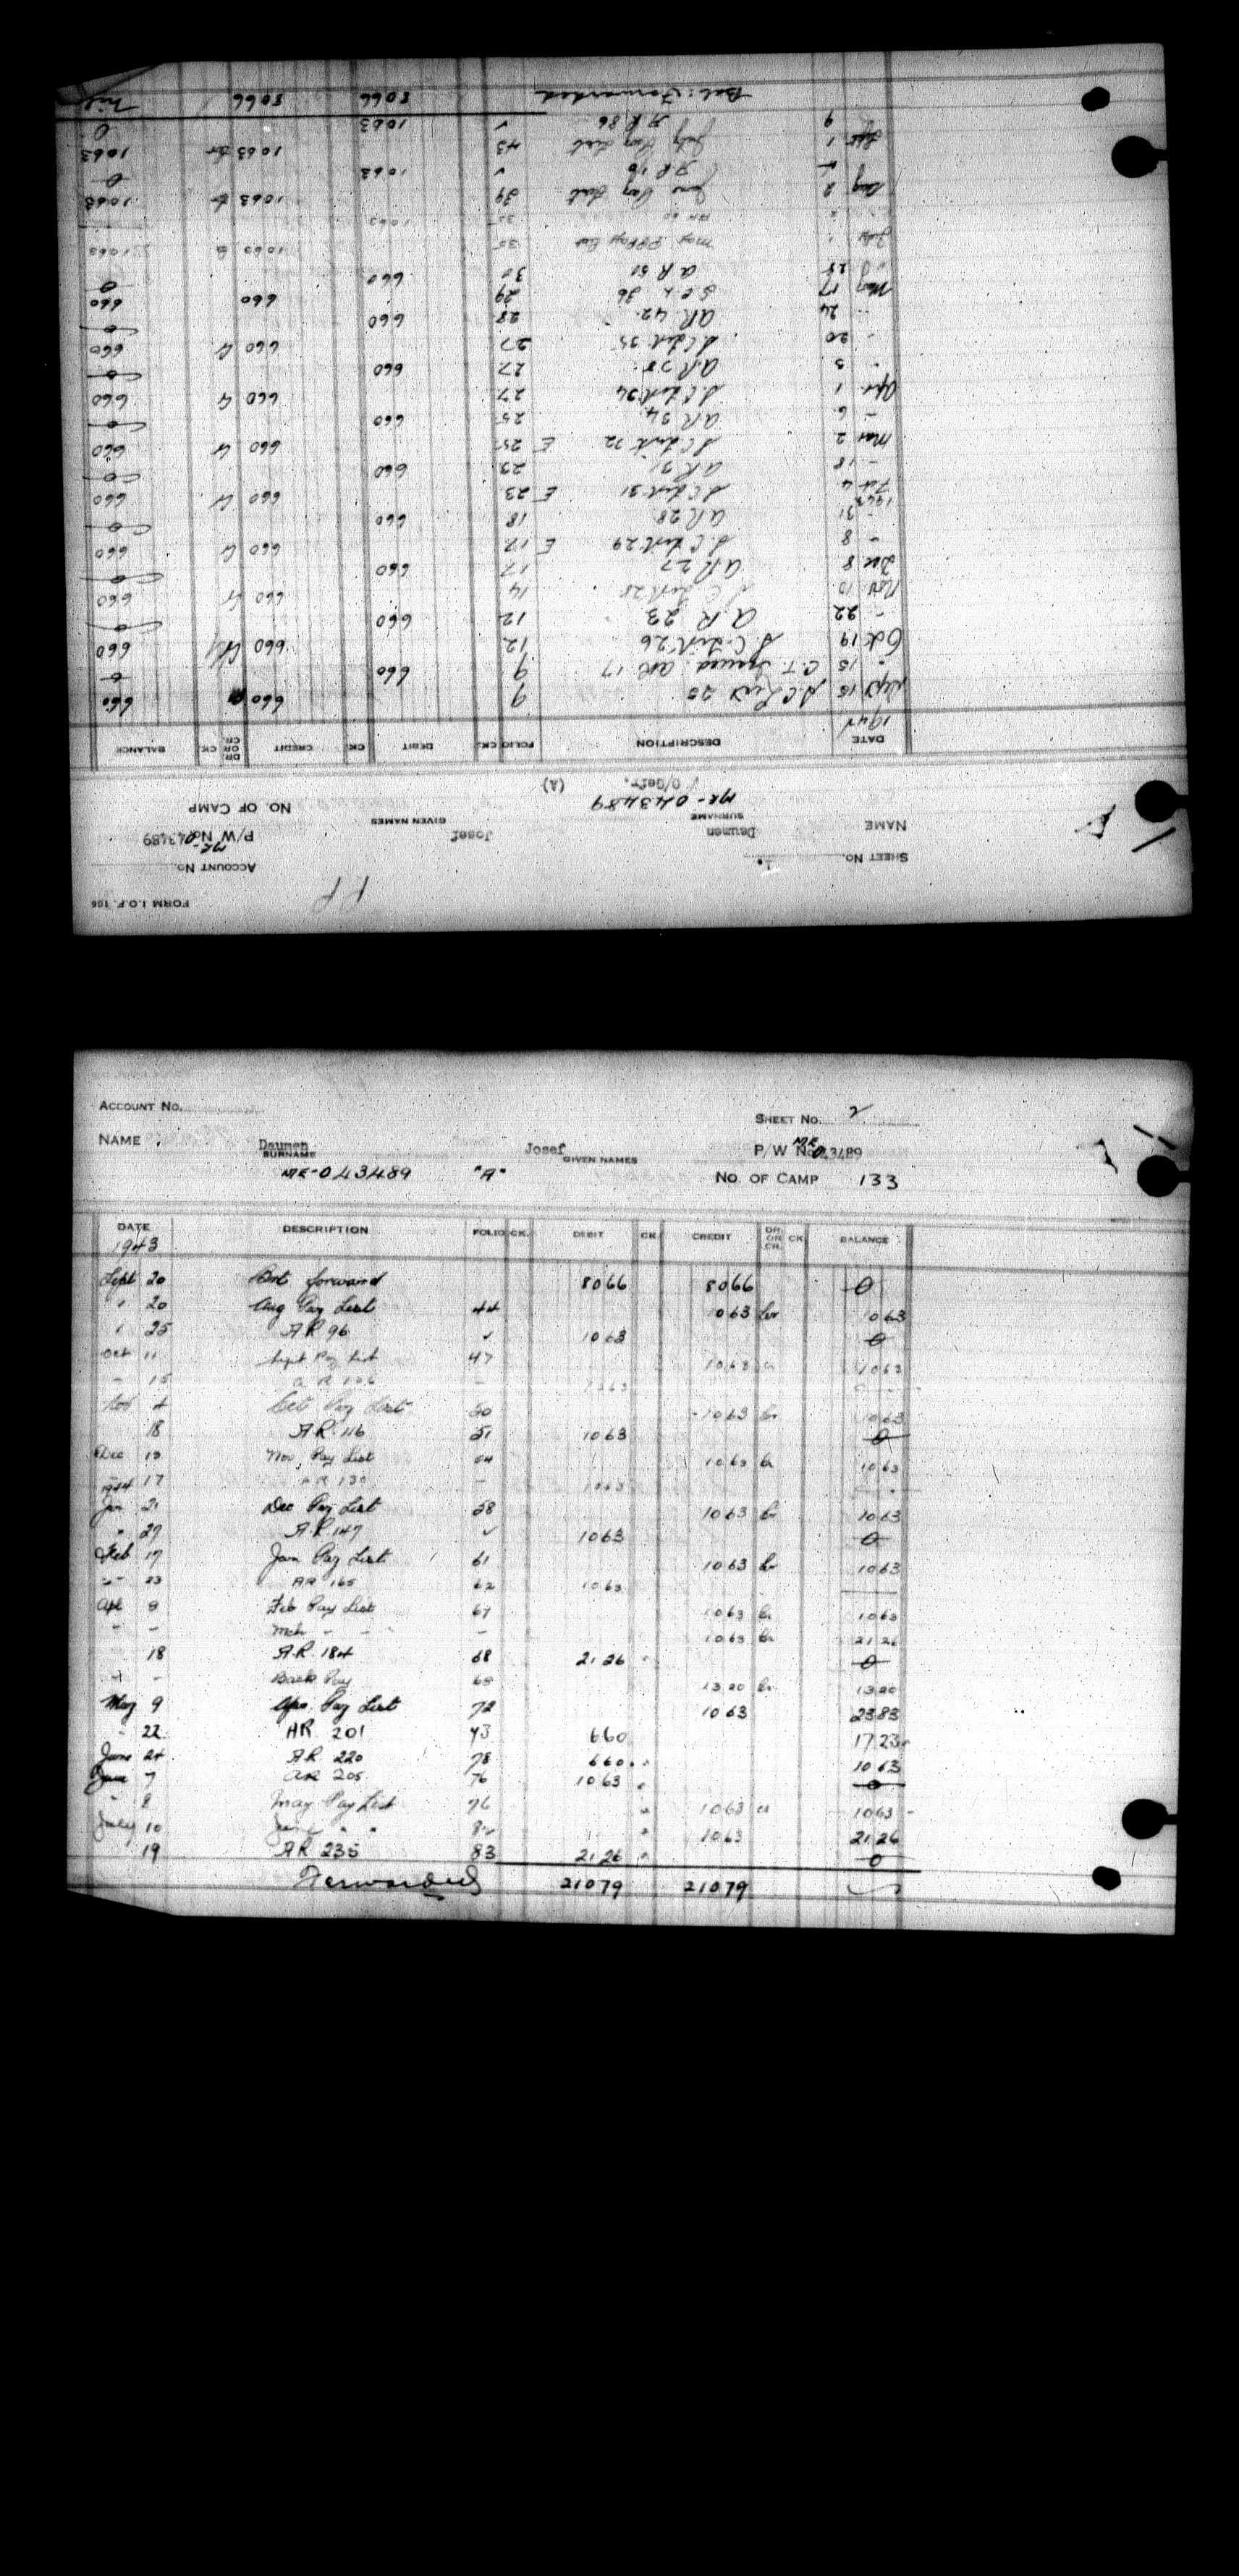 FORM I.O.F. 106
PP
SHEET NO. 1.
ACCOUNT No.
NAME Daumen Josef P/W No. ME-043489
SURNAME GIVEN NAMES
ME-043489 NO. OF CAMP
O/Gefr. (A)
DATE DESCRIPTION FOLIO CK. DEBIT CK. CREDIT DR. OR CR. CK. BALANCE
Sept 15 9 660 660
15 C.T. Issued AR 17 9 660 0
Oct 19 26 12 660 660
- 22 A.R. 23 12 660 0
Nov 10 14 660 Cr 660
Dec 8 A.R 27 17 660 0
- 8 29 E 17 660 Cr 660
- 31 A.R 28 18 660 0
1943
Feb 4 31 E 23 660 Cr 660
- 18 A.R 31 23 660 0
Mar 2 32 E 25 660 Cr 660
- 6 A.R 34 25 660 0
Apr 1 34 27 660 Cr 660
- 5 A.R 38 27 660 0
- 20 35 27 660 Cr 660
- 24 A.R. 42 28 660 0
May 17 36 29 660 660
A.R 50 30 660 0
July May Pay List 30 1063 Cr 1063
1063
Aug 2 June Pay List 39 1063 Cr 1063
A.R ✓ 1063 0
Sept 1 July Pay List 43 1063 Cr 1063
9 A.R 86 ✓ 1063 0
Bal. Forwarded 8066 8066 Nil
ACCOUNT No.
SHEET No. 2
NAME Daumen Josef P/W No. ME 043489
SURNAME GIVEN NAMES
ME-043489 "A" NO. OF CAMP 133
DATE DESCRIPTION FOLIO CK. DEBIT CK. CREDIT DR. OR CR. CK. BALANCE
1943
Sept 20 Brt forward 8066 8066 0
" 20 Aug Pay List 44 1063 Cr 1063
" 25 A.R 96 ✓ 1063 0
Oct 11 Sept Pay List 47 1063 Cr 1063
- 15 A R 1063
Nov 4 Oct Pay List 50 1063 Cr 1063
18 A.R. 116 51 1063 0
Dec 13 Nov. Pay List 54 1063 Cr 1063
17 AR 1063
1944
Jan 21 Dec Pay List 58 1063 Cr 1063
" 27 A.R 147 ✓ 1063 0
Feb 17 Jan Pay List 61 1063 Cr 1063
- 23 AR 165 62 1063
Apl 8 Feb Pay List 67 1063 Cr 1063
- - Mch - - - 1063 Cr 2126
18 A.R. 184 68 2126 0
- - Back Pay 68 1320 Cr 1320
May 9 Apr. Pay List 72 1063 2383
" 22 AR 201 73 660 1723
June 24 AR 220 78 660 1063
June 7 AR 205 76 1063 0
" 8 May Pay List 76 1063 Cr 1063
July 10 June " " 1063 2126
19 AR 235 83 2126 0
Forwarded 21079 21079